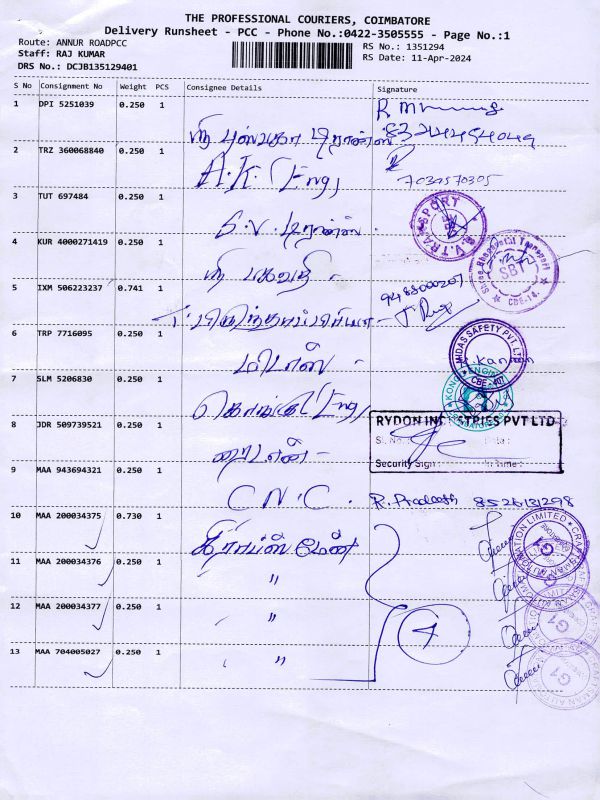 THE PROFESSIONAL COURIERS, COIMBATORE
Delivery Runsheet - PCC - Phone No.:0422-3505555 - Page No.:1
Route: ANNUR ROADPCC
RS No.: 1351294
Staff: RAJ KUMAR
RS Date: 11-Apr-2024
DRS No.: DCJB135129401
S No Consignment No Weight PCS Consignee Details Signature
1 DPI 5251039 0.250 1
2 TRZ 360068840 0.250 1
A.K. Eng
7030570305
3 TUT 697484 0.250 1
S.V. TRANSPORT
4 KUR 4000271419 0.250 1
ஸ்ரீ பகவதி -
Shree Bhagavathi Transport
SBT
CBE-14.
5 IXM 506223237 0.741 1
9488000207
6 TRP 7716095 0.250 1
மிடாஸ் -
MIDAS SAFETY PVT. LTD
CBE - 407
7 SLM 5206830 0.250 1
Eng
8 JDR 509739521 0.250 1
RYDON INDUSTRIES PVT LTD
Sl. No.: Date:
Security Sign: In Time:
9 MAA 943694321 0.250 1
C N C. R. Pradeesh 8526131298
10 MAA 200034375 0.730 1
கிராப்ஸ் மேன்
CRAFTSMAN AUTOMATION LIMITED
G1
11 MAA 200034376 0.250 1
"
12 MAA 200034377 0.250 1
"
4
G1
13 MAA 704005027 0.250 1
"
G1